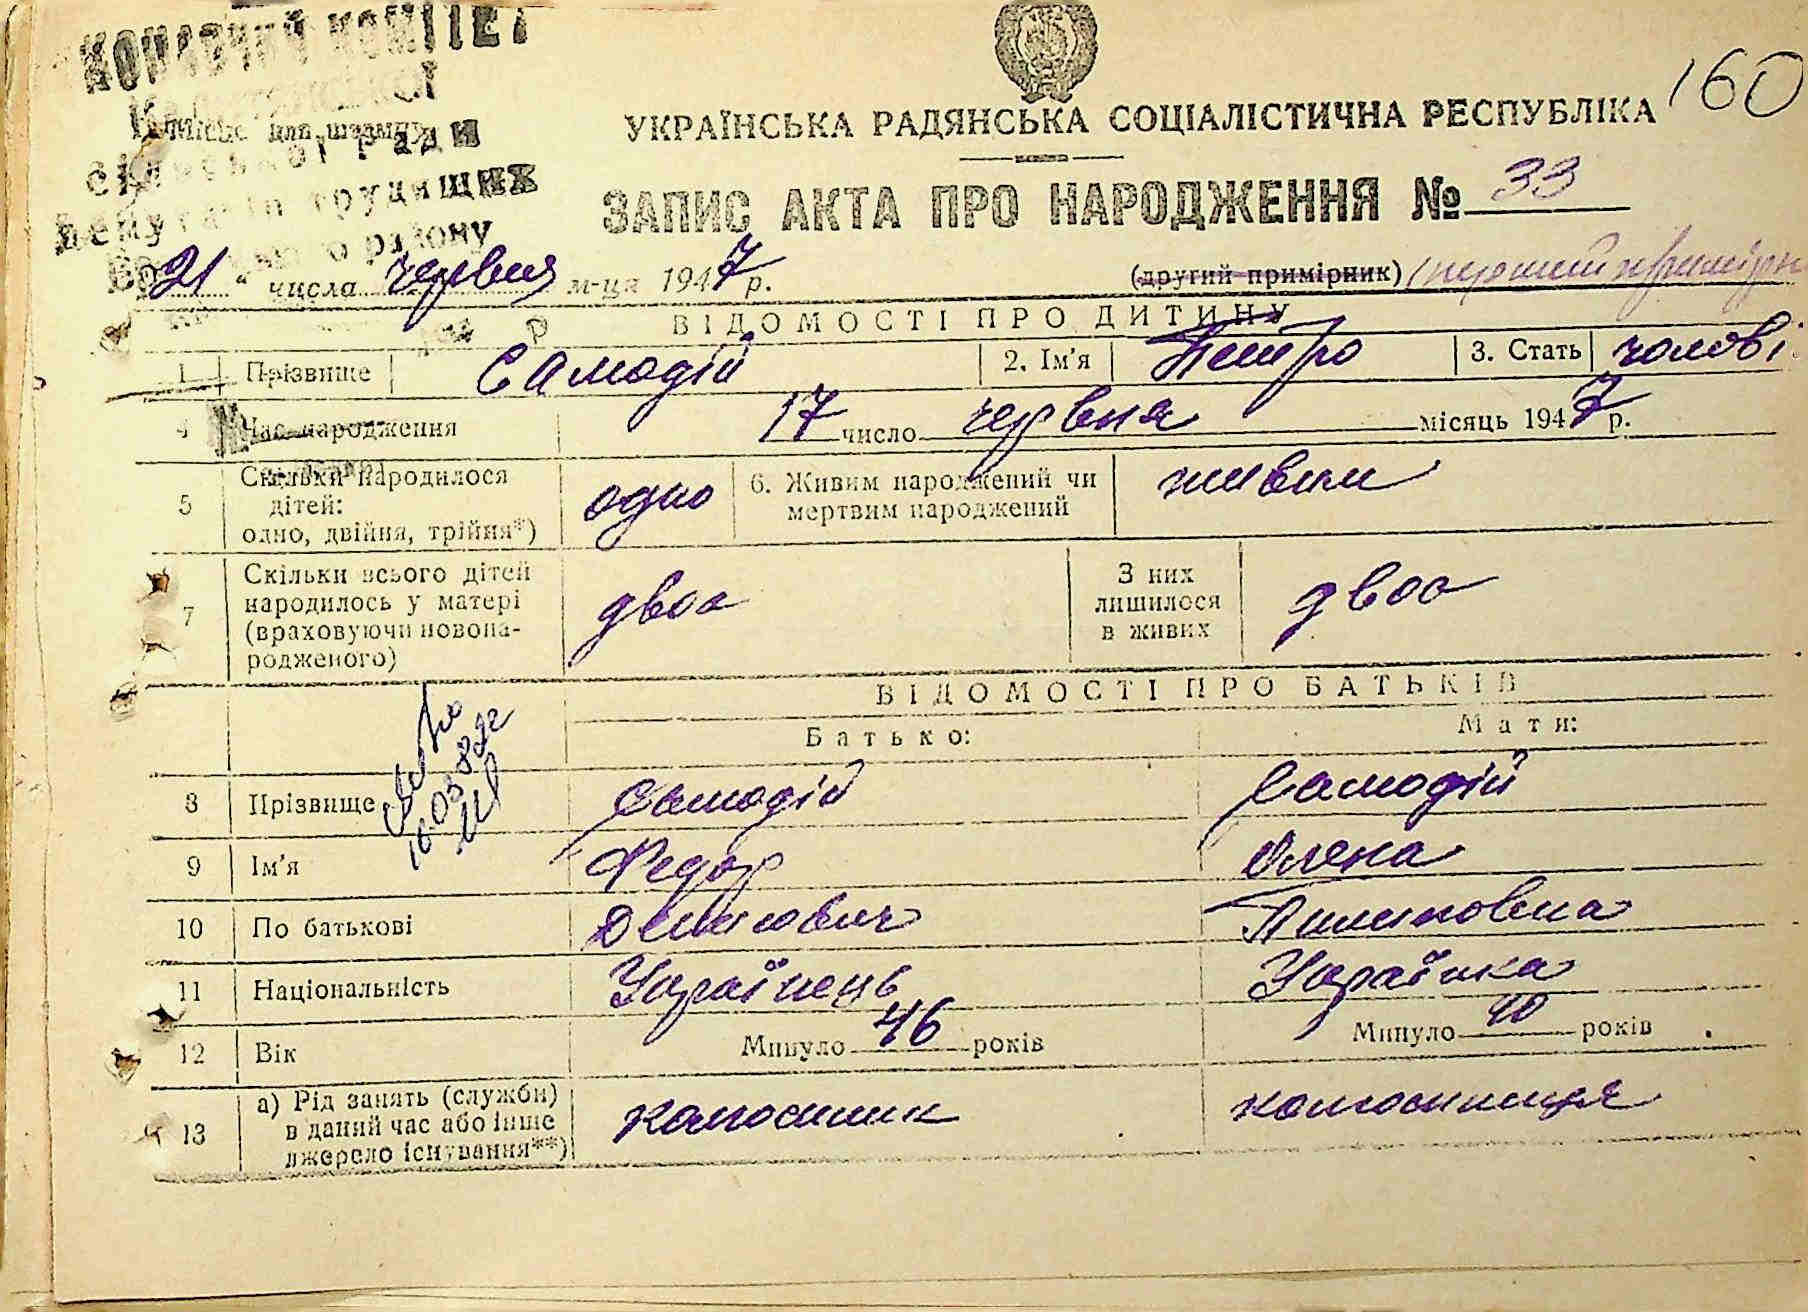 КОНАВЧИЙ КОМІТЕТ
Місце для штампу
сільської ради
депутатів трудящих
району
160
УКРАЇНСЬКА РАДЯНСЬКА СОЦІАЛІСТИЧНА РЕСПУБЛІКА
ЗАПИС АКТА ПРО НАРОДЖЕННЯ № 33
21 " числа червня м-ця 1947 р. (другий примірник) (перший примірн
ВІДОМОСТІ ПРО ДИТИНУ
1 Прізвище Самодій 2. Ім'я Петро 3. Стать чолові
4 Час народження 17 число червня місяць 1947 р.
5 Скільки народилося дітей: одно, двійня, трійня*) одно 6. Живим народжений чи мертвим народжений живим
7 Скільки всього дітей народилось у матері (враховуючи новонародженого) двоє З них лишилося в живих двоє
ВІДОМОСТІ ПРО БАТЬКІВ
Батько: Мати:
8 Прізвище Самодій Самодій
9 Ім'я Федор Олена
10 По батькові Пилиповна
11 Національність Українець Українка
12 Вік Минуло 46 років Минуло 40 років
13 а) Рід занять (служби) в даний час або інше джерело існування**) колгоспник колгоспниця